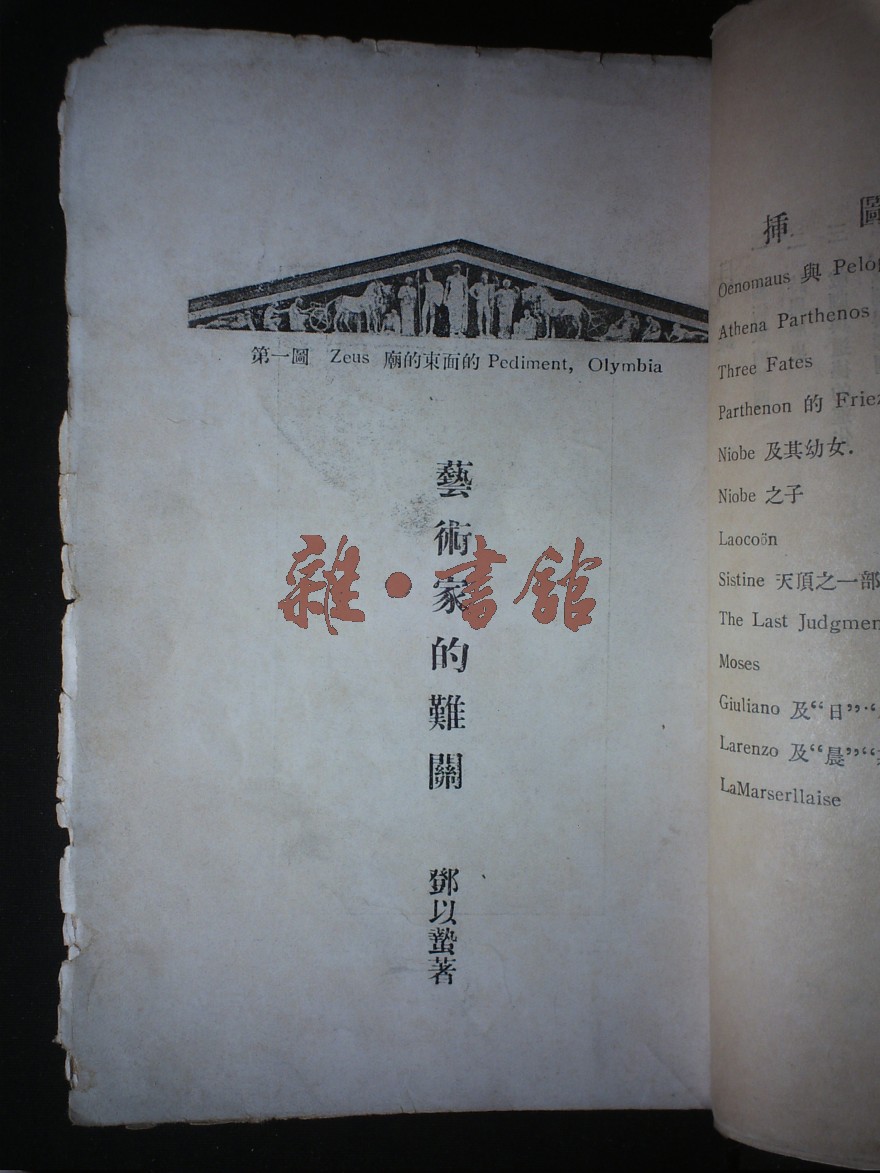 第一圖 Zeus 廟的東面的 Pediment, Olymbia
藝術家的難關
鄧以蟄著
雜·書舘
揷圖
Oenomaus 與
Athena Parthenos
Three Fates
Parthenon 的
Niobe 及其幼女.
Niobe 之子
Laocoön
Sistine 天頂之一部
The Last Judgmen
Moses
Giuliano 及“日”
Larenzo 及“晨”
LaMarserllaise